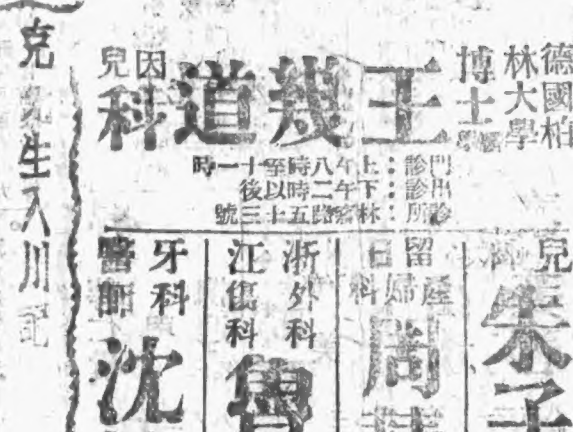 德國柏
林大學
博士
王幾道
兒科
門診：上午八時至十一時
出診：下午二時以後
診所：林森路五十三號
兒
朱子
留日
產婦科
周
浙江
外科
傷科
魯
牙科
醫師
沈
生入川記